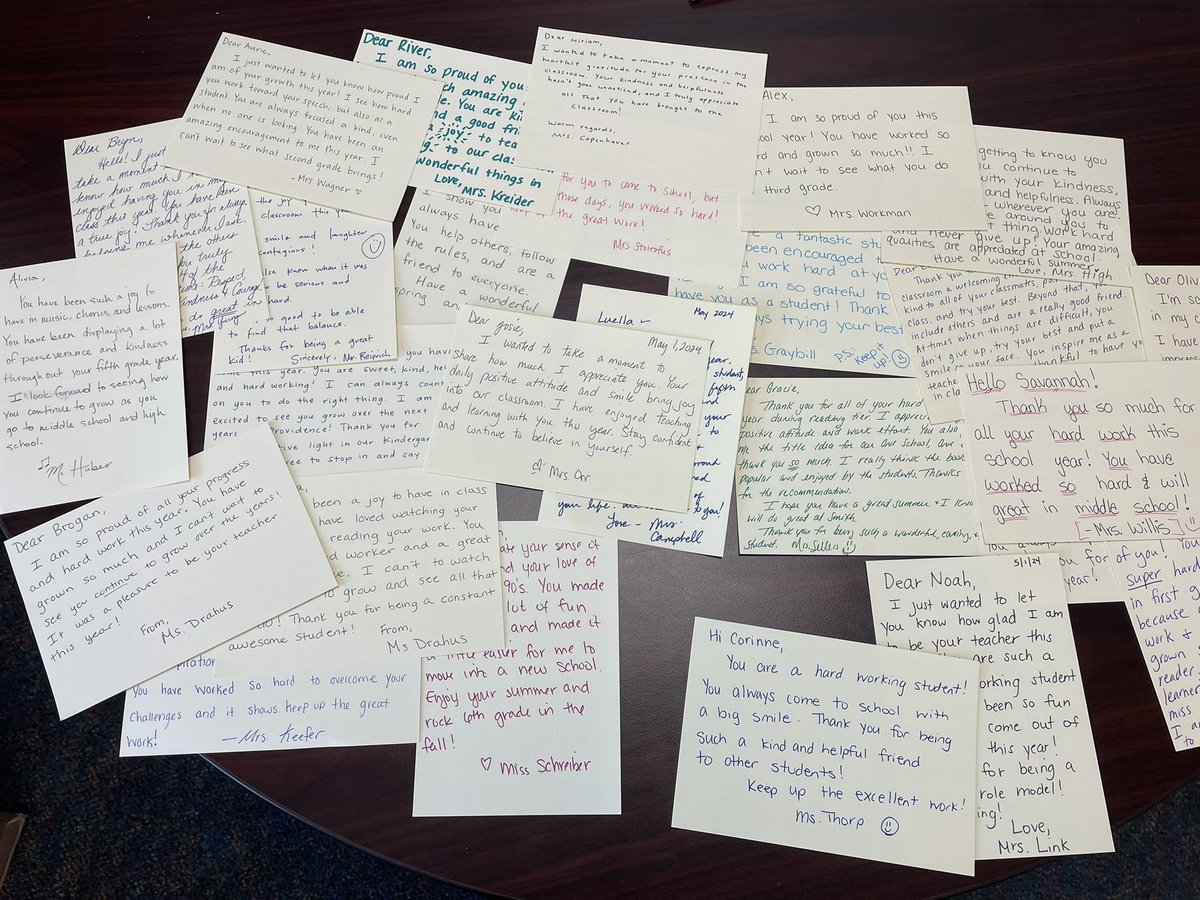 Dear Averie,
I just wanted to let you know how proud I
am of your growth this year! I see how hard
you work toward your speech, but also as a
student. You are always focused & kind, even
when no one is looking. You have been an
amazing encouragement to me this year. I
can't wait to see what second grade brings!
- Mrs Wagner ♡
Dear River,
I am so proud of you
amazing
You are ki
d a good fri
a joy to tea
to our clas
wonderful things in
Love, Mrs. Kreider
Dear Miriam,
I wanted to take a moment to express my
heartfelt gratitude for your presence in the
classroom. Your kindness and helpfulness
hasn't gone unnoticed, and I truly appreciate
all that you have brought to the
classroom!
Warm regards,
Mrs. Copenhaver
Alex,
I am so proud of you this
ool year! You have worked so
rd and grown so much!! I
n't wait to see what you do
third grade.
♡ Mrs. Workman
getting to know you
you continue to
with your kindness,
and helpfulness. Always
wherever you are.
around you to
thing. Work hard
and never give up! Your amazing
qualities are appreciated at school.
Have a wonderful summer
Love, Mrs. High
Dear Brynn,
Hello! I just
take a moment
know how much I
enjoyed having you in my
class this year. You have been
a true joy. Thank you for always
helping me whenever I ask.
the others
you truly
of the
kindness & caring.
do great
the joy
classroom this year
smile and laughter
contagious!
also knew when it was
to be serious and
hard.
is good to be able
to find that balance.
Thanks for being a great
kid!
Sincerely, Mr Reiprich
I show you
always have
You help others, follow
the rules, and are a
friend to everyone.
Have a wonderful
spring an
for you to come to school, but
those days, you worked so hard!
the great work!
Mrs Stoltzfus
e a fantastic stu
been encouraged to
u work hard at yo
I am so grateful to
have you as a student! Thank
ways trying your best
s. Graybill
P.S. Keep it
up!
Dear
Thank you
classroom a welcoming en
to all of your classmates, pa
class, and try your best. Beyond that, you
include others and are a really good friend.
At times when things are difficult, you
don't give up, try your best and put a
smile on your face. You inspire me as a
teache
thankful to have yo
in cla
Dear Oliv
I'm so
in my c
I hav
impac
Alivia,
You have been such a joy to
have in music, chorus, and lessons.
You have been displaying a lot
of perseverance and kindness
throughout your fifth grade year.
I look forward to seeing how
you continue to grow as you
go to middle school and high
school.
M. Huber
this year. You are sweet, kind, he
and hard working! I can always count
on you to do the right thing. I am
excited to see you grow over the next
years
Providence! Thank you for
ive light in our Kindergar
ee to stop in and say
May 1, 2024
Dear Josie,
I wanted to take a moment to
share how much I appreciate you. Your
daily positive attitude and smile bring joy
into our classroom. I have enjoyed teaching
and learning with you this year. Stay confident
and continue to believe in yourself.
♡ Mrs. Orr
May 2024
Luella -
ear,
student,
fifth
and
your
to
proud
to you!
your life.
Love - Mrs
Campbell
Dear Gracie,
Thank you for all of your hard
year during reading tier. I apprec
positive attitude and want effort. You also
me the title idea for our One School, One
thank you so much. I really think the book
popular and enjoyed by the students. Thanks
for the recommendation.
I hope you have a great summer & I know
will do great at Smith
Thank you for being such a wonderful, caring, &
student. Ms. Selles
Hello Savannah!
Thank you so much for
all your hard work this
school year! You have
worked so hard & will
great in middle school!
- Mrs. Willis
Dear Brogan
I am so proud of all your progress
and hard work this year. You have
grown so much and I can't wait to
see you continue to grow over the years!
It was a pleasure to be your teacher
this year!
From,
Ms. Drahus
been a joy to have in class
have loved watching your
reading your work. You
d worker and a great
e. I can't to watch
to grow and see all that
do! Thank you for being a constant
awesome student!
From,
Ms Drahus
piration
You have worked so hard to overcome your
challenges and it shows keep up the great
work!
-Mrs. Keefer
ate your sense of
nd your love of
90's. You made
lot of fun
and made it
a little easier for me to
move into a new school.
Enjoy your summer and
rock 6th grade in the
fall!
♡ Miss Schreiber
Hi Corinne,
You are a hard working student!
You always come to school with
a big smile. Thank you for being
such a kind and helpful friend
to other students!
Keep up the excellent work!
Ms. Thorp
5/1/24
Dear Noah,
I just wanted to let
you know how glad I am
to be your teacher this
are such a
orking student
been so fun
come out of
this year!
for being a
role model!
ing!
Love,
Mrs. Link
you for
year!
of you! You
super hard
in first g
because
work &
grown
reader
learne
miss
I am
to